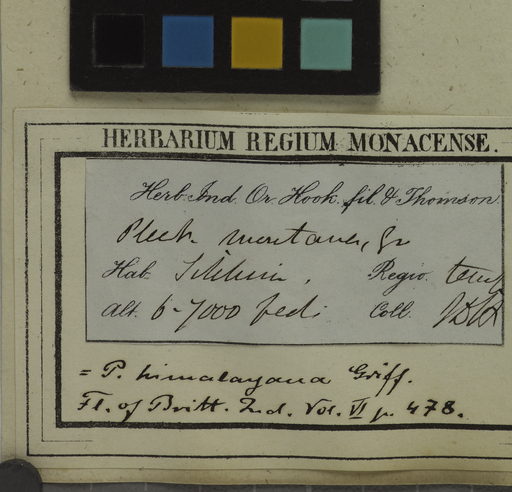 HERBARIUM REGIUM MONACENSE.
Herb. Ind. Or. Hook. fil. & Thomson
Plect. montana, Gr
Hab. Sikkim, Regio. temp
Alt. 6-7000 ped. Coll. JDH
= P. himalayana Griff.
Fl. of Britt. Ind. Vol. VI p. 478.